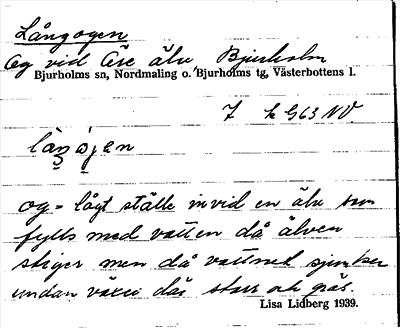 Långogen
Og vid Öre älv Bjurholm
Bjurholms sn, Nordmaling o. Bjurholms tg, Västerbottens l.
7 k G63 NV.
og = lågt ställe invid en älv som
fylls med vatten då älven
stiger men då vattnet sjunker
undan växer där starr och gräs.
Lisa Lidberg 1939.